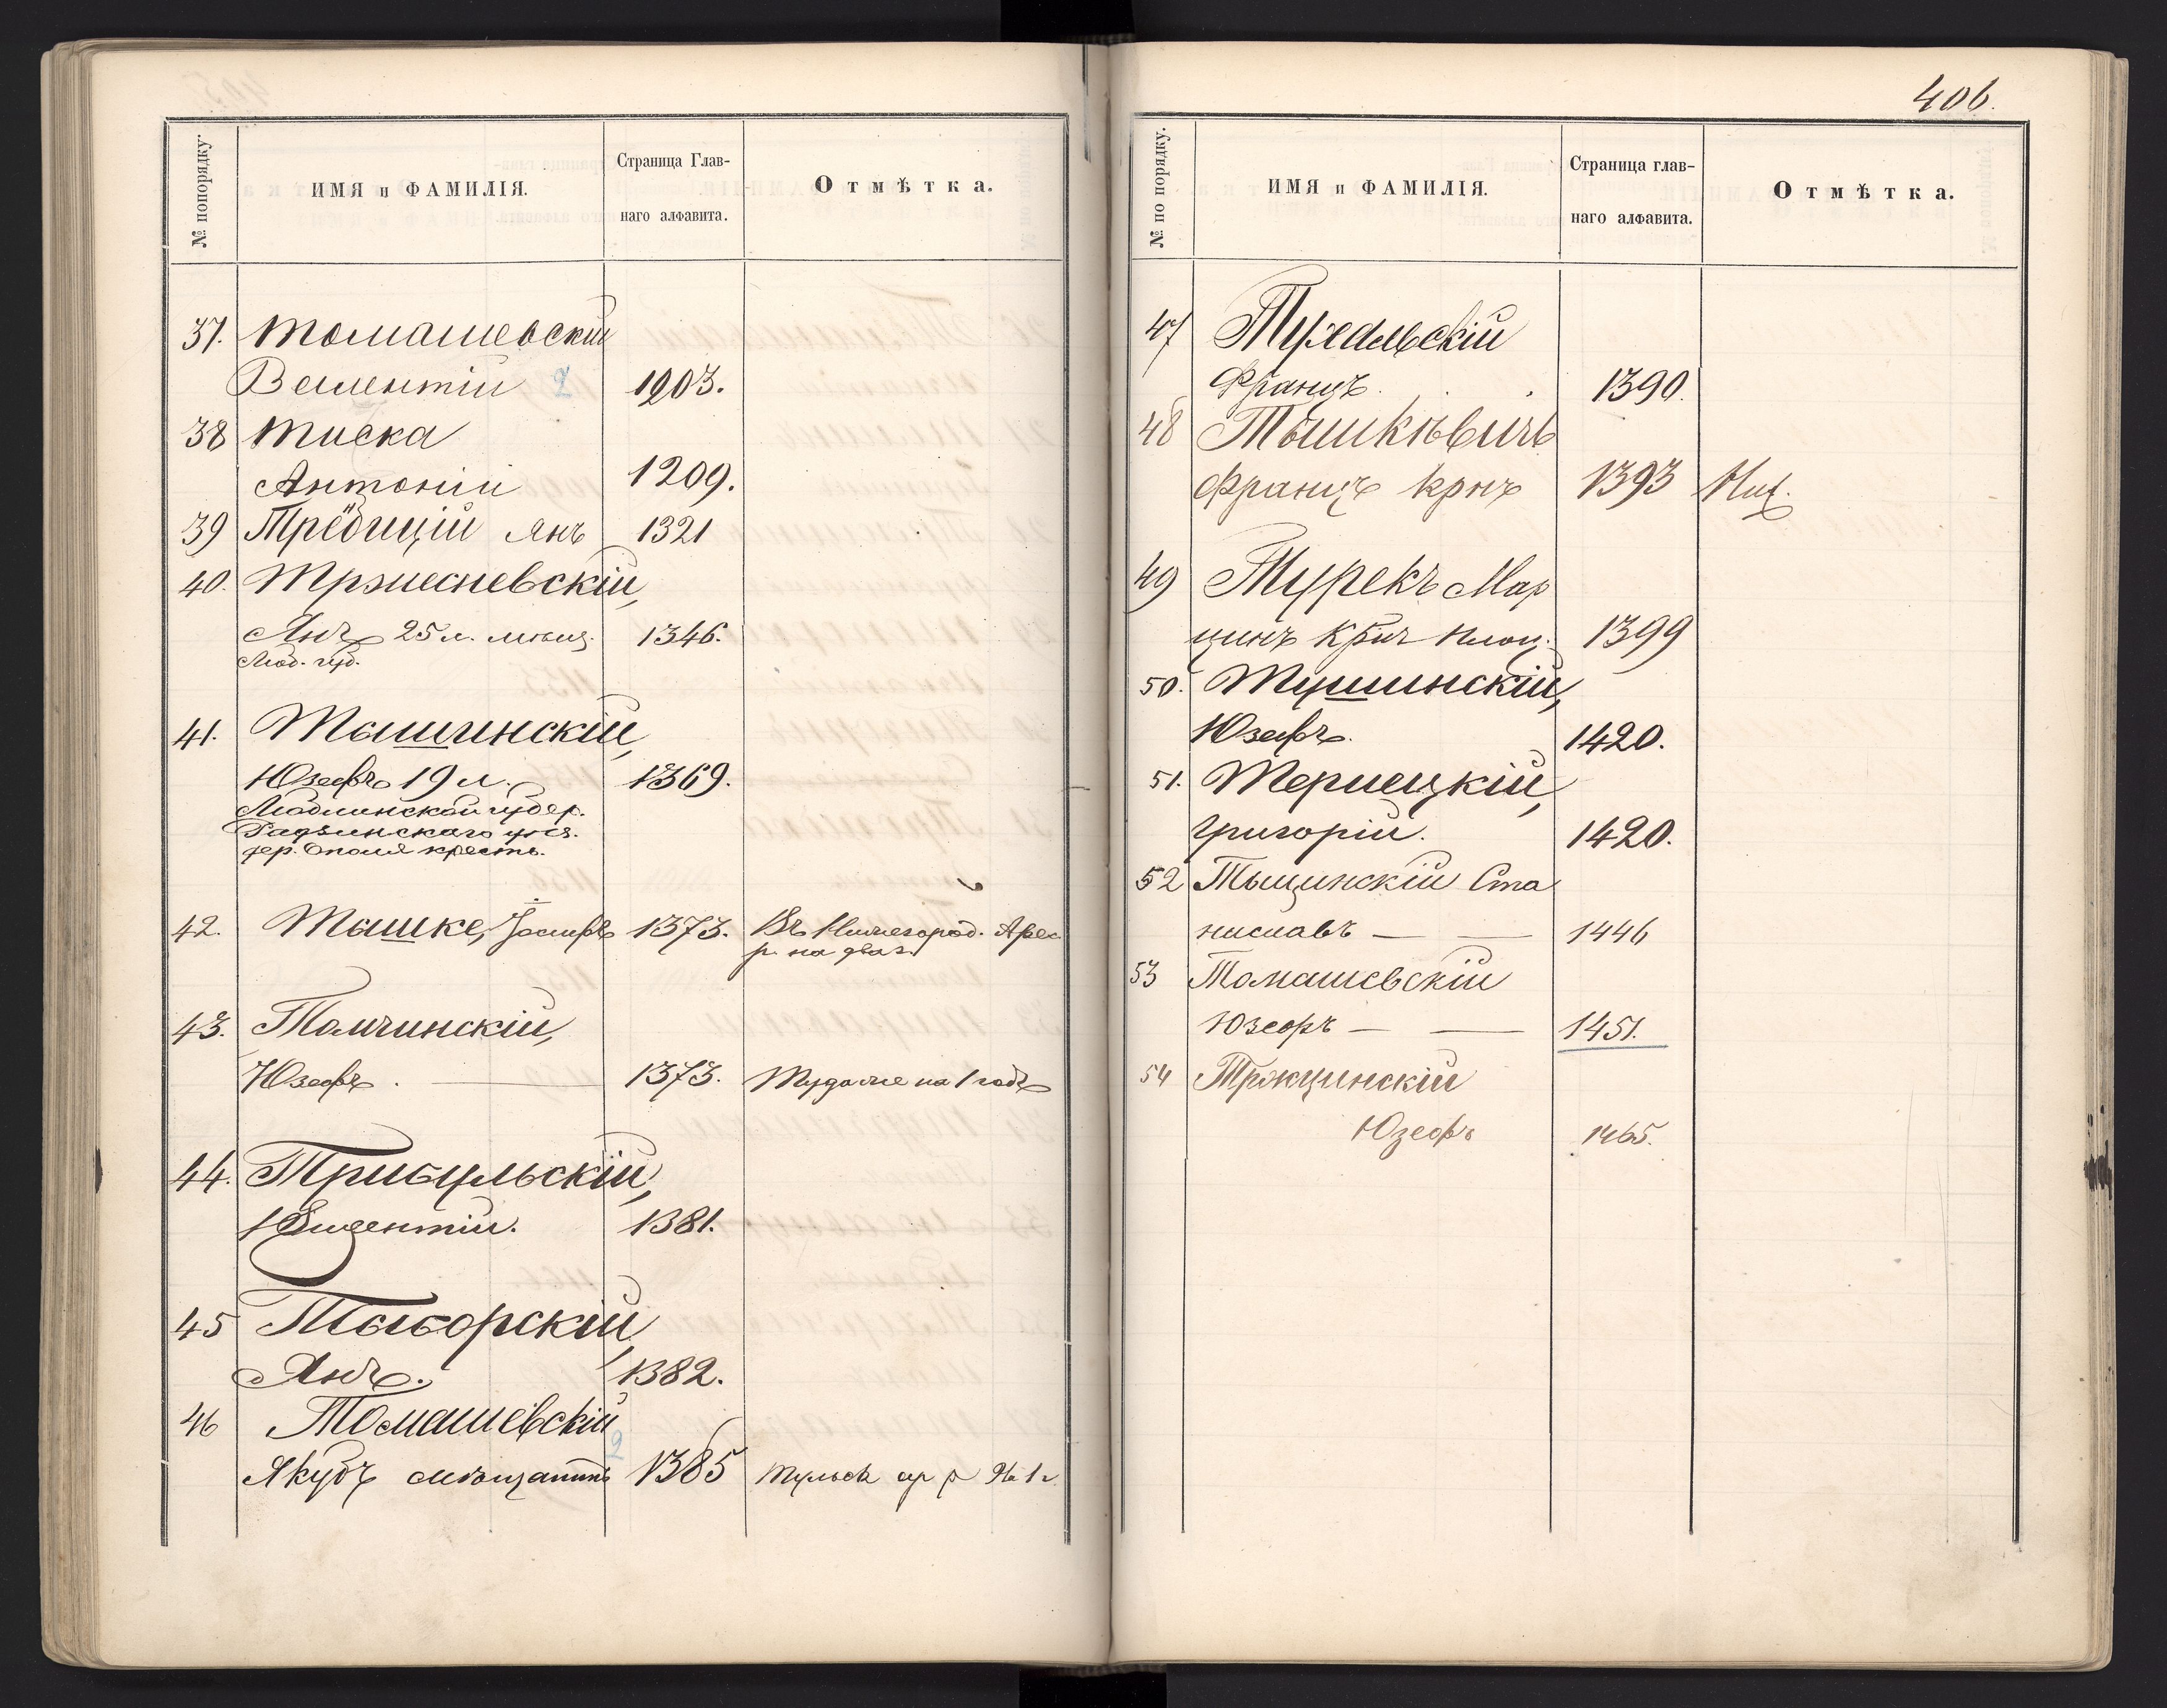 № попорядку.
ИМЯ и ФАМИЛІЯ.
Страница Глав-
наго алфавита.
Отмѣтка.
37. Томашевскій
Вешентій 2 1203.
38 Тиска
Антоній 1209.
39 Янъ 1321
40. Тршесневскій,
Янъ 25 л. мѣщ. 1346.
Люб. губ.
41. Ташчинскій,
Юзефъ 19 л. 1369.
Люблинской губер.
Радзинскаго уѣз.
дер. Ополя крестъ.
42. Ташке, Іосифъ 1373. Въ Нижегород. Арес.
р. на два г.
43. Томчинскій,
Юзефъ. 1373. Тудаже на 1 годъ
44. Трибульскій,
1381.
45 Таборскій,
Янъ. 1382.
46 Томашевскій 2
Якубъ мѣщанинъ 1385 Тульск ар р На 1 г.
406.
№ по порядку.
ИМЯ и ФАМИЛІЯ.
Страница глав-
наго алфавита.
Отмѣтка.
47 Тухальскій
Францъ. 1390.
48 Тышкѣвичъ
Францъ крнъ 1393
49 Турекъ Мар
цинъ Плоц. 1399
50. Тушинскій,
Юзефъ. 1420.
51. Терлецкій,
Григорій. 1420.
52 Тыщинскій Ста
ниславъ — — 1446
53 Томашевскій
Юзефъ — — 1451.
54 Тржцинскій
Юзефъ 1465.